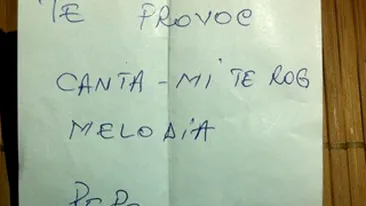 TE PROVOC
CANTA-MI TE ROG
MELODIA